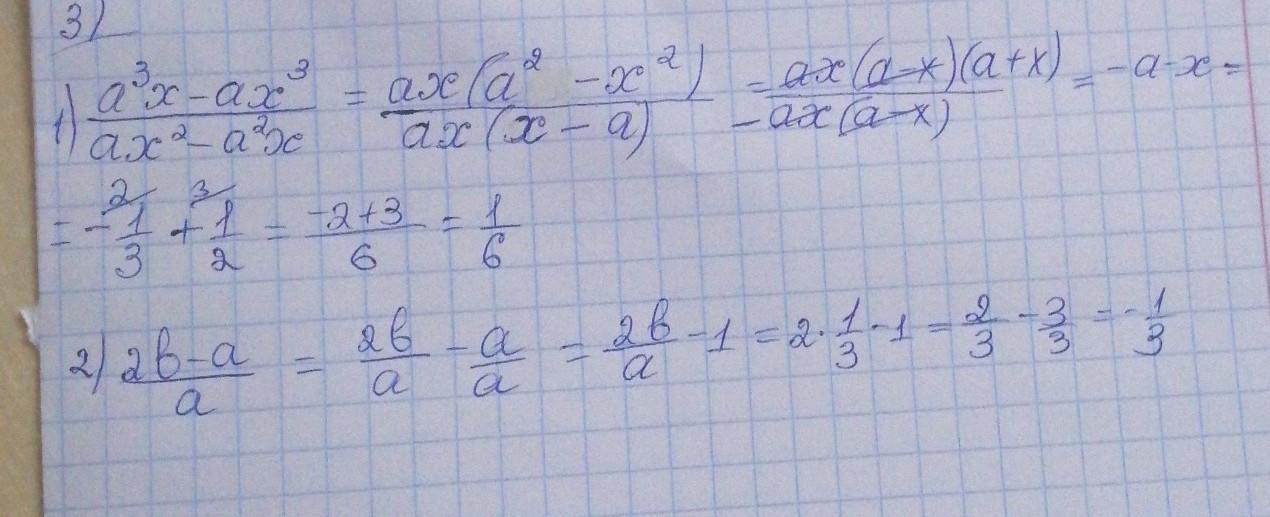 3)
1) (a³x - ax³)/(ax² - a²x) = ax(a² - x²)/(ax(x - a)) = ax(a-x)(a+x)/(-ax(a-x)) = -a-x =
= -1/3 (2) + 1/2 (3) = (-2+3)/6 = 1/6
2) (2в-a)/a = 2в/a - a/a = 2в/a - 1 = 2·1/3 - 1 = 2/3 - 3/3 = -1/3